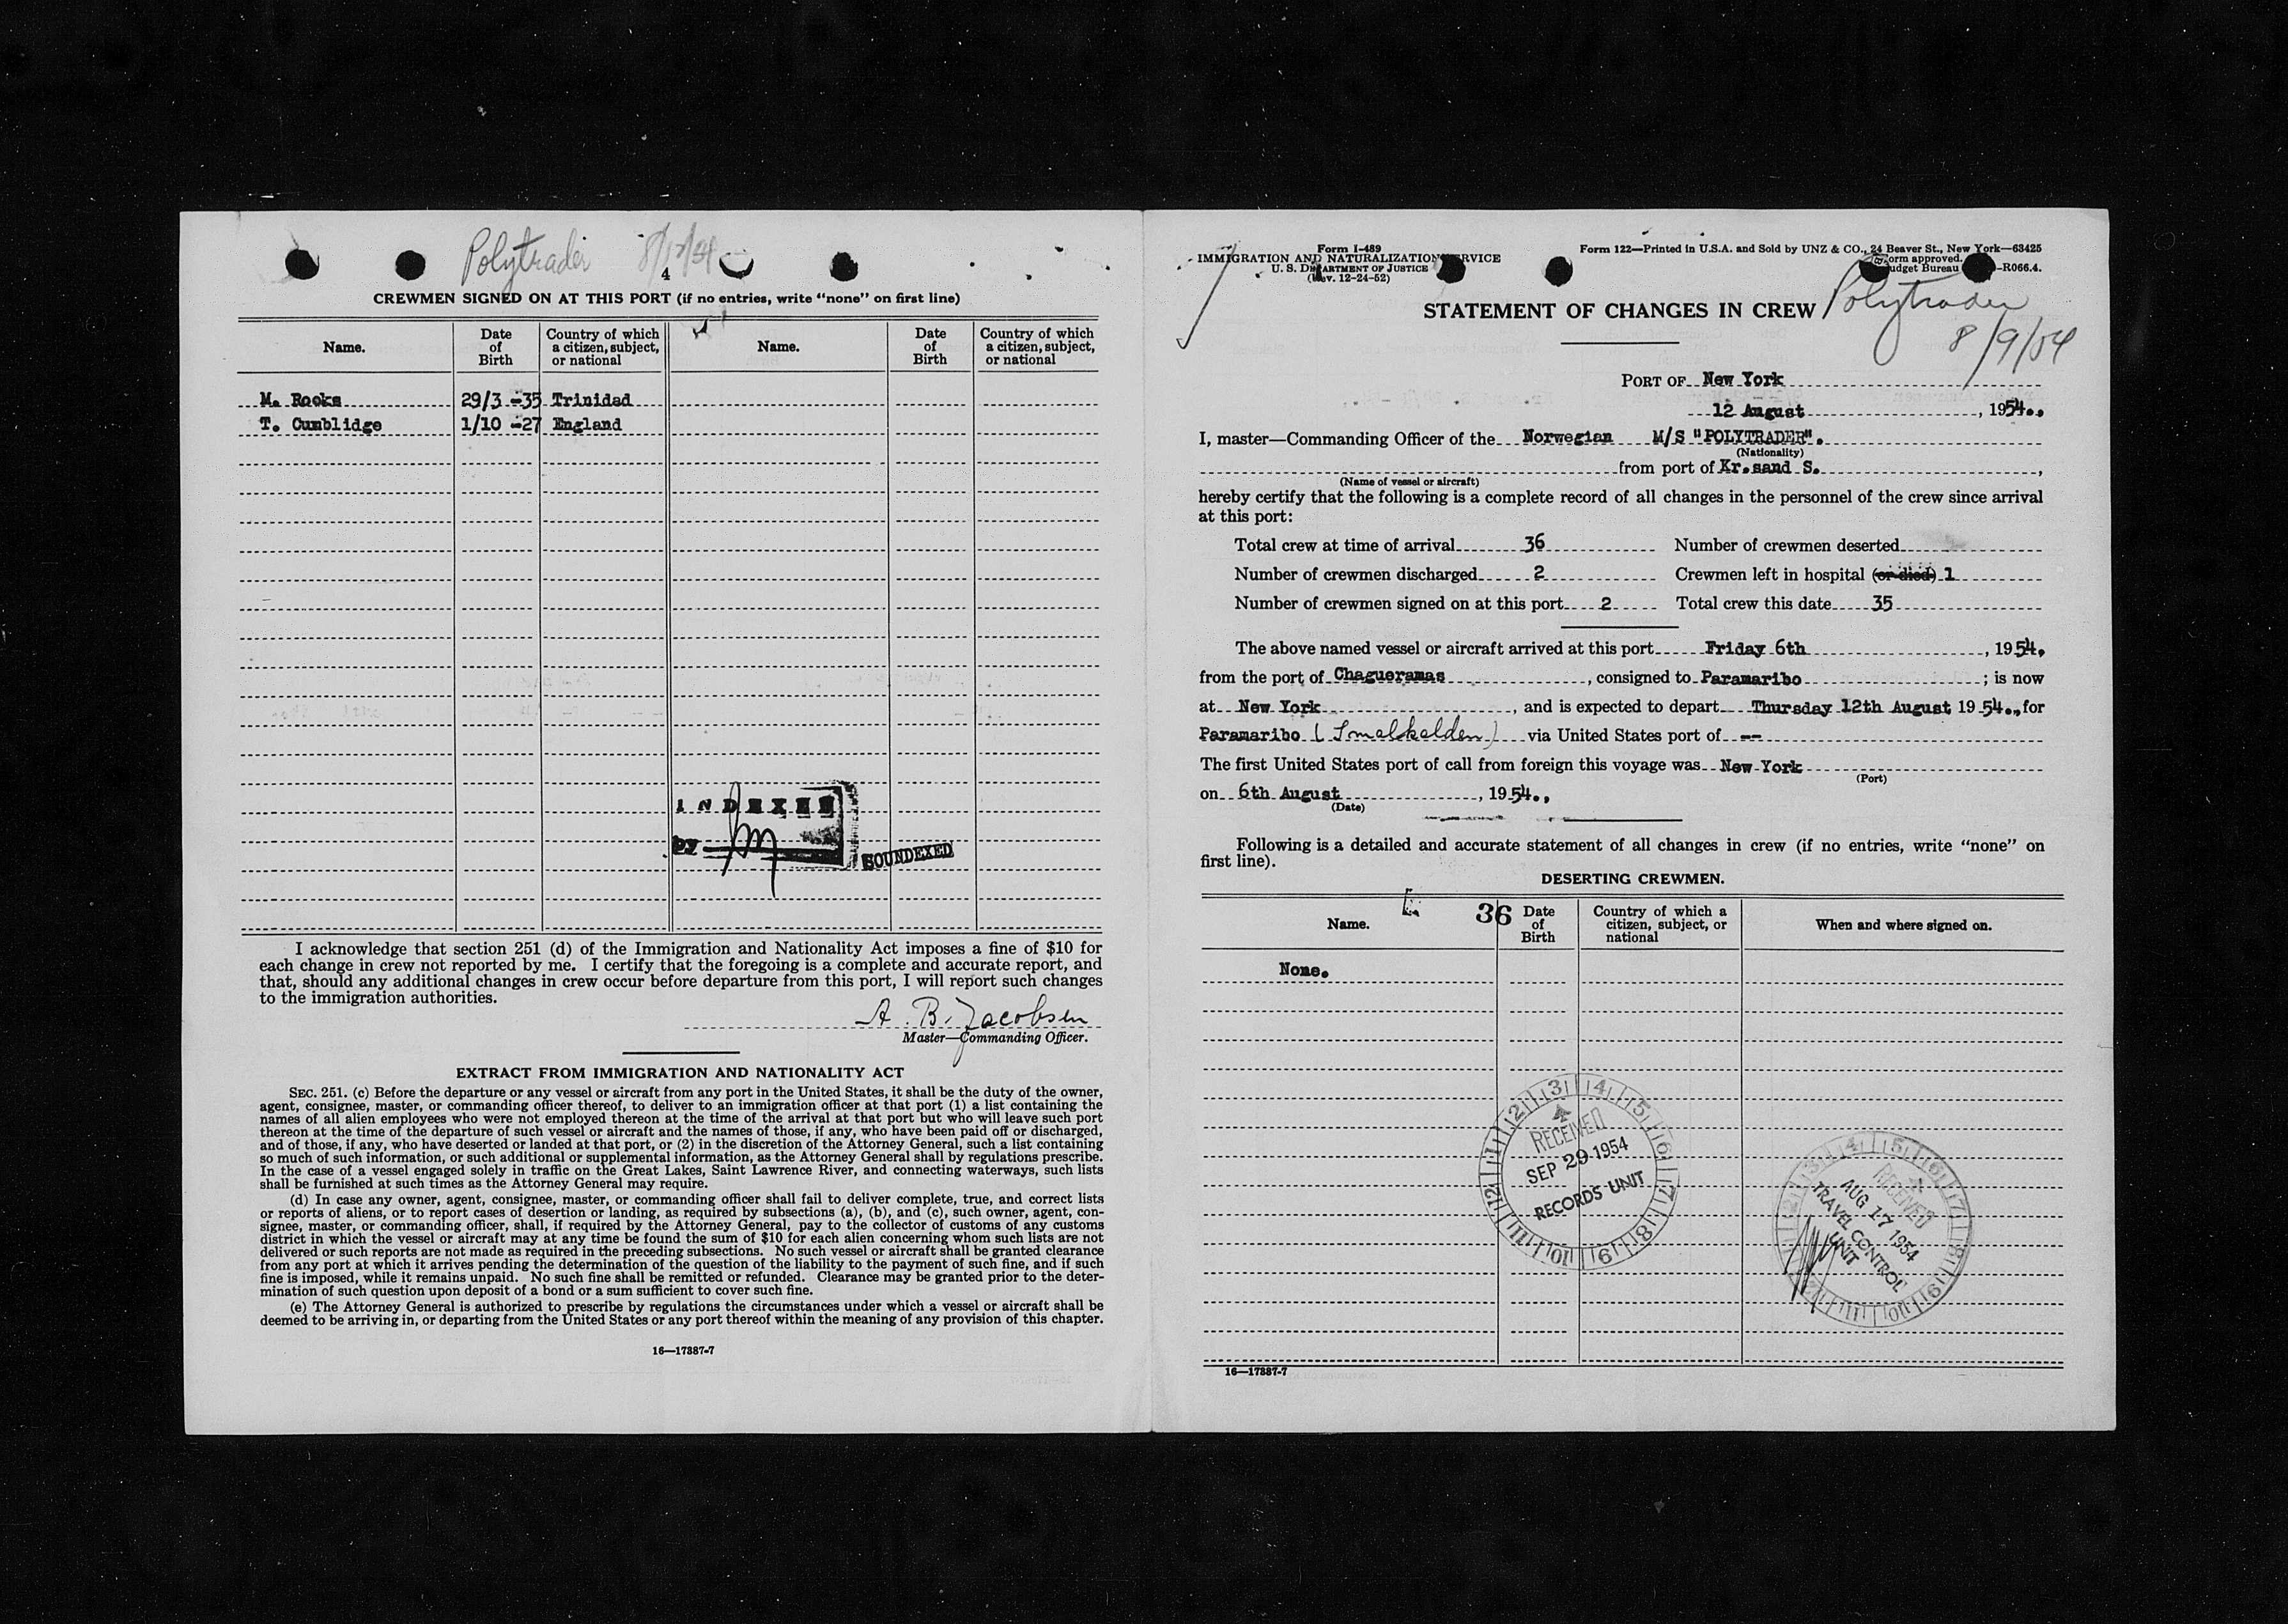 Polytrader
4
CREWMEN SIGNED ON AT THIS PORT (if no entries, write “none” on first line)
Name. Date of Birth Country of which a citizen, subject, or national Name. Date of Birth Country of which a citizen, subject, or national
M. Rooks 29/3 -35 Trinidad
T. Cumblidge 1/10 -27 England
INDEXED
BY
SOUNDEXED
I acknowledge that section 251 (d) of the Immigration and Nationality Act imposes a fine of $10 for
each change in crew not reported by me. I certify that the foregoing is a complete and accurate report, and
that, should any additional changes in crew occur before departure from this port, I will report such changes
to the immigration authorities.
A. B. Jacobsen
Master—Commanding Officer.
EXTRACT FROM IMMIGRATION AND NATIONALITY ACT
SEC. 251. (c) Before the departure or any vessel or aircraft from any port in the United States, it shall be the duty of the owner,
agent, consignee, master, or commanding officer thereof, to deliver to an immigration officer at that port (1) a list containing the
names of all alien employees who were not employed thereon at the time of the arrival at that port but who will leave such port
thereon at the time of the departure of such vessel or aircraft and the names of those, if any, who have been paid off or discharged,
and of those, if any, who have deserted or landed at that port, or (2) in the discretion of the Attorney General, such a list containing
so much of such information, or such additional or supplemental information, as the Attorney General shall by regulations prescribe.
In the case of a vessel engaged solely in traffic on the Great Lakes, Saint Lawrence River, and connecting waterways, such lists
shall be furnished at such times as the Attorney General may require.
(d) In case any owner, agent, consignee, master, or commanding officer shall fail to deliver complete, true, and correct lists
or reports of aliens, or to report cases of desertion or landing, as required by subsections (a), (b), and (c), such owner, agent, con-
signee, master, or commanding officer, shall, if required by the Attorney General, pay to the collector of customs of any customs
district in which the vessel or aircraft may at any time be found the sum of $10 for each alien concerning whom such lists are not
delivered or such reports are not made as required in the preceding subsections. No such vessel or aircraft shall be granted clearance
from any port at which it arrives pending the determination of the question of the liability to the payment of such fine, and if such
fine is imposed, while it remains unpaid. No such fine shall be remitted or refunded. Clearance may be granted prior to the deter-
mination of such question upon deposit of a bond or a sum sufficient to cover such fine.
(e) The Attorney General is authorized to prescribe by regulations the circumstances under which a vessel or aircraft shall be
deemed to be arriving in, or departing from the United States or any port thereof within the meaning of any provision of this chapter.
16—17887-7
Form I-489
IMMIGRATION AND NATURALIZATION SERVICE
U. S. DEPARTMENT OF JUSTICE
(Rev. 12-24-52)
Form 122—Printed in U.S.A. and Sold by UNZ & CO., 24 Beaver St., New York—63425
Form approved.
Budget Bureau -R066.4.
STATEMENT OF CHANGES IN CREW Polytrader
8/9/54
PORT OF New York
12 August, 1954..
I, master—Commanding Officer of the Norwegian M/S "POLYTRADER".
(Nationality)
from port of Kr.sand S.,
(Name of vessel or aircraft)
hereby certify that the following is a complete record of all changes in the personnel of the crew since arrival
at this port:
Total crew at time of arrival 36 Number of crewmen deserted
Number of crewmen discharged 2 Crewmen left in hospital (or died) 1
Number of crewmen signed on at this port 2 Total crew this date 35
The above named vessel or aircraft arrived at this port Friday 6th, 1954.
from the port of Chagueramas, consigned to Paramaribo; is now
at New York, and is expected to depart Thursday 12th August 1954., for
Paramaribo (Smalkalden) via United States port of --
The first United States port of call from foreign this voyage was New York
(Port)
on 6th August, 1954.,
(Date)
Following is a detailed and accurate statement of all changes in crew (if no entries, write “none” on
first line).
DESERTING CREWMEN.
36
Name. Date of Birth Country of which a citizen, subject, or national When and where signed on.
None.
RECEIVED
SEP 29 1954
RECORDS UNIT
RECEIVED
AUG 17 1954
TRAVEL CONTROL
UNIT
16—17887-7